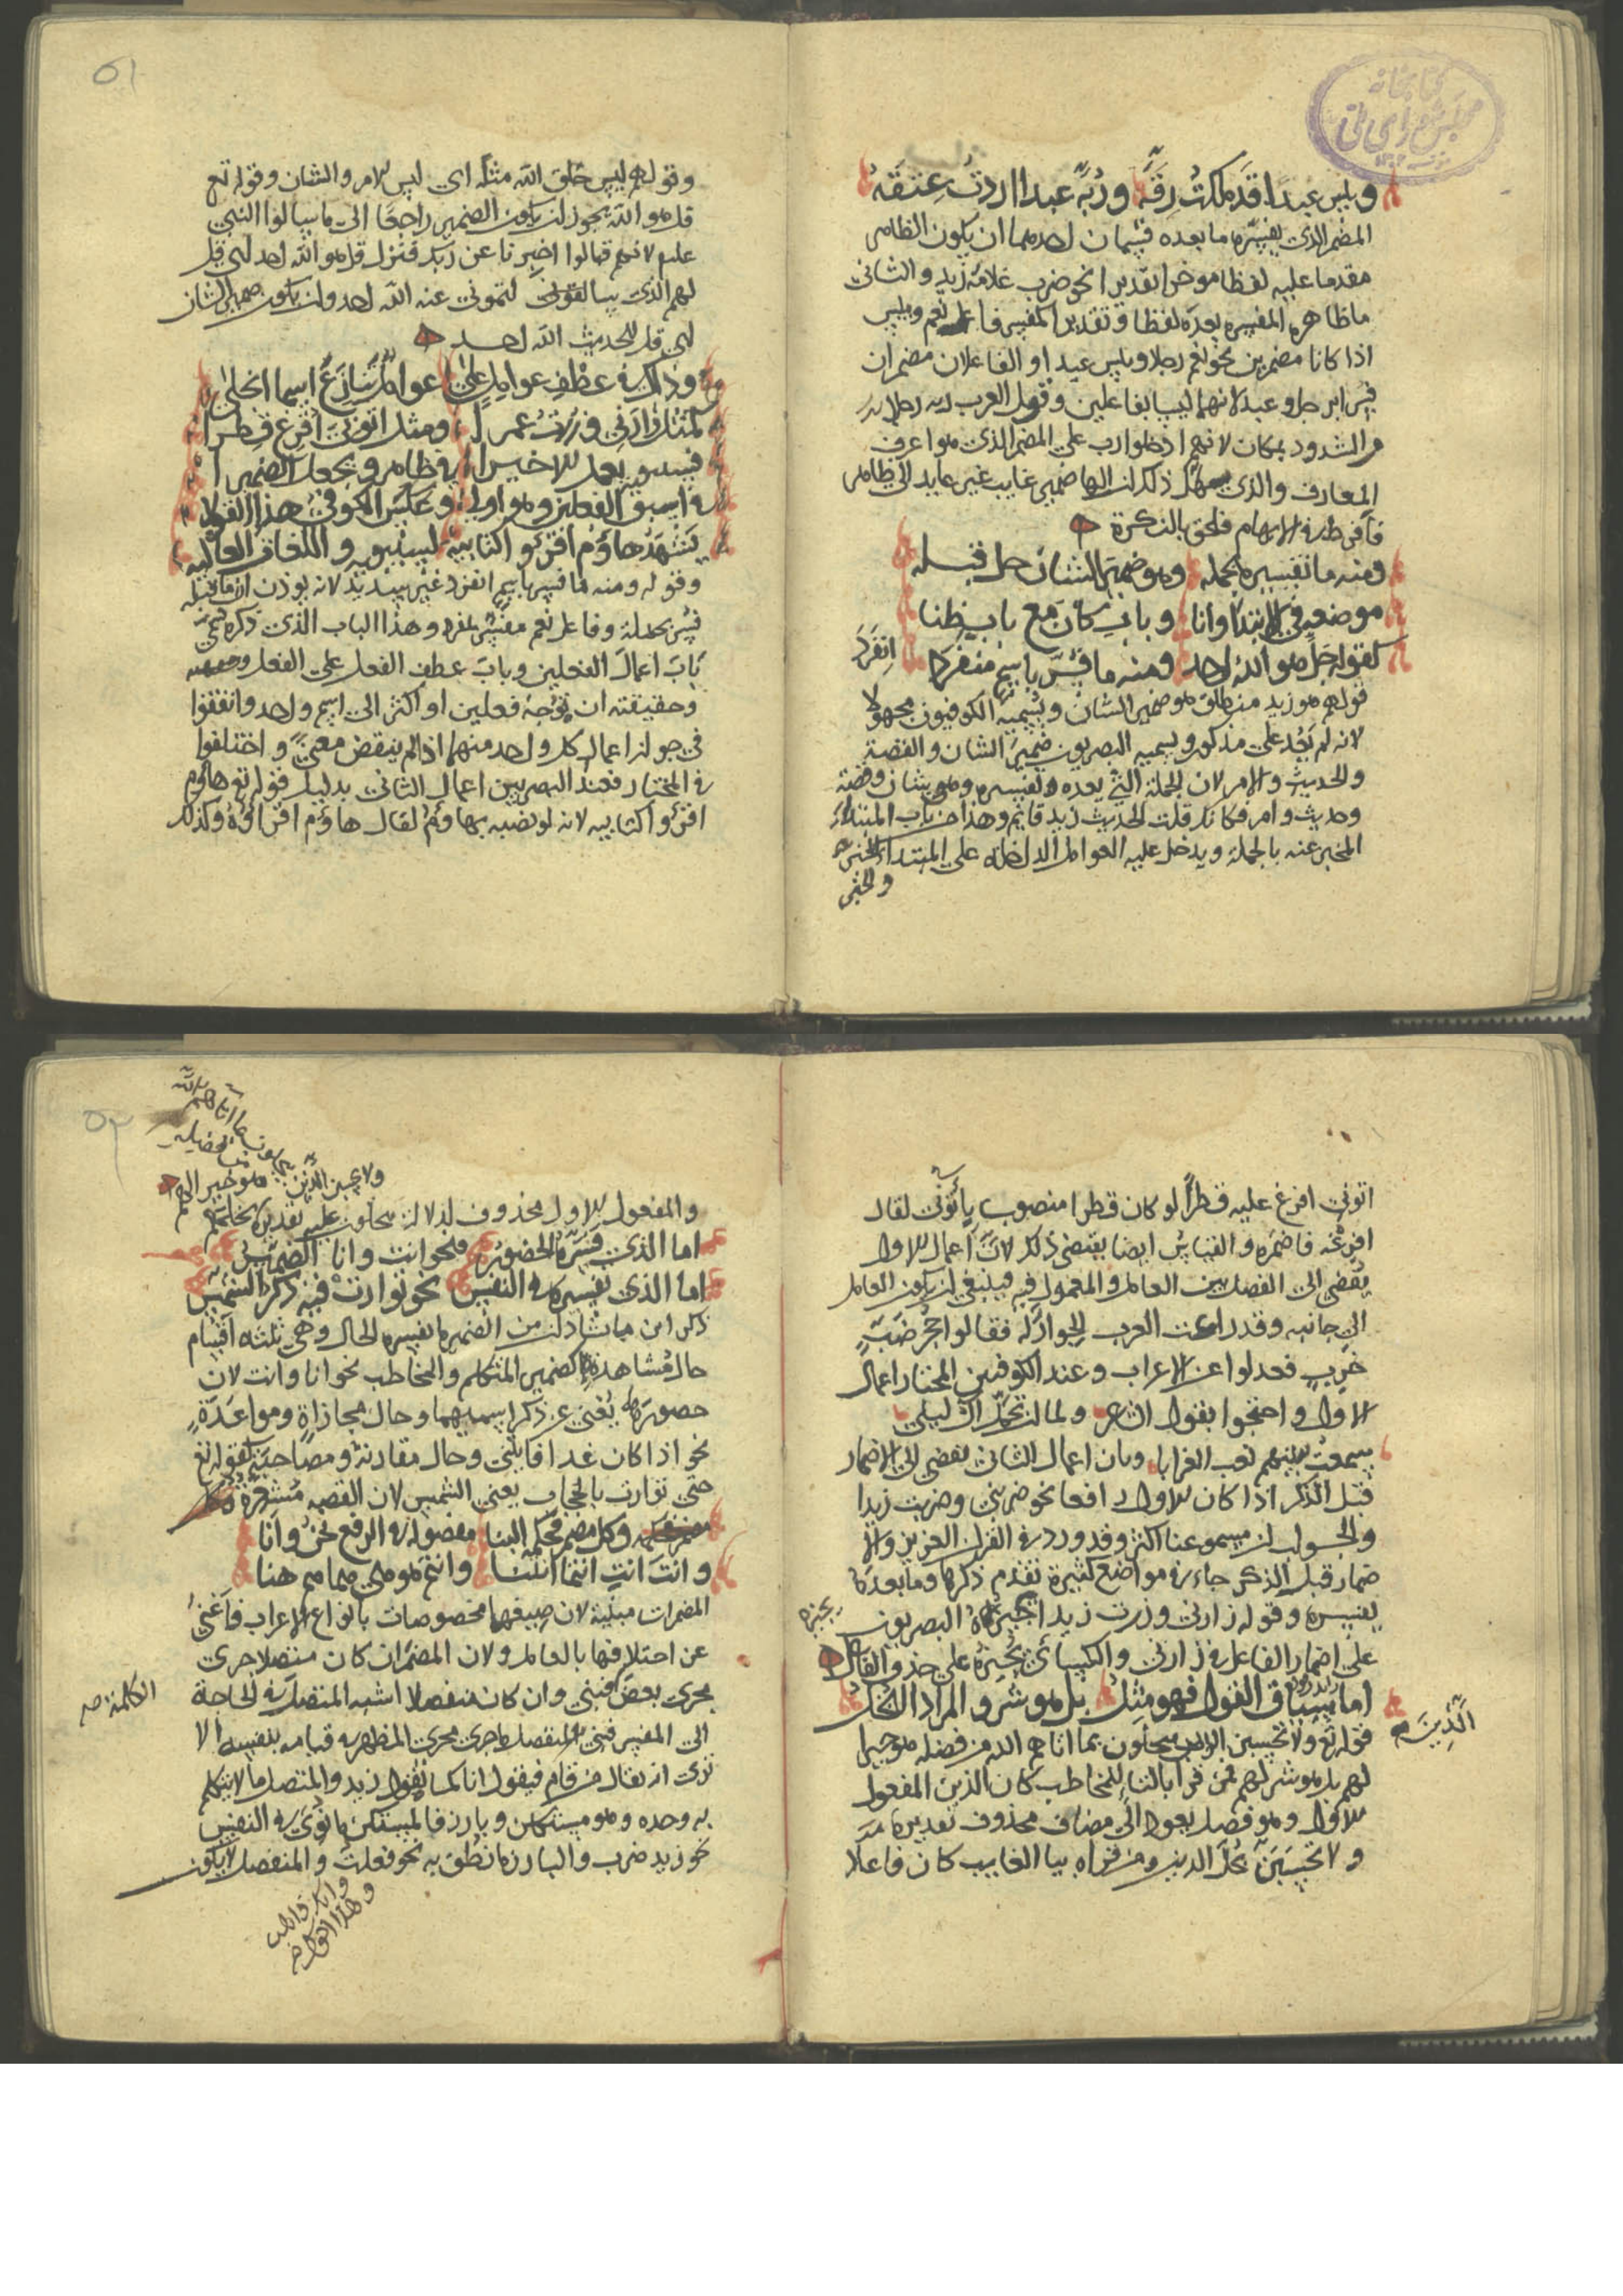 وبئس عبدا قد ملكت رقه وربه عبدا اردت عتقه
المضمر الذي يفسره ما بعده قسمان احدهما ان يكون الظاهر
مقدما عليه لفظا موخرا تقديرا نحو ضرب غلامه زيد والثاني
ما ظاهره المفسره بعده لفظا وتقديرا كمفسر فاعل نعم وبيس
اذا كانا مضمرين نحو نعم رجلا وبيس عبدا والفاعلان مضمران
فسرا برجل وعبد لانهما ليسا بفاعلين وقول العرب ربه رجلا
من الشذوذ بمكان لانهم ادخلوا رب على المضمر الذي هو اعرف
المعارف والذي سهل ذلك ان الها ضمير غايب غير عايد الى ظاهر
فافرط في الابهام فلحق بالنكرة
ومنه ما تفسيره بجمله وهو ضمير الشان حل قبله
موضعه في الابتدا وانا وباب كان مع باب ظنا
كقوله جل هو الله احد ومنه ما فسر باسم منفردا
انفرد
قولهم هو زيد منطلق هو ضمير الشان ويسميه الكوفيون مجهولا
لانه لم يعد على مذكور ويسميه البصريون ضمير الشان والقصة
والحديث والامر لان الجملة التي بعده تفسيره وهي شان وقصة
وحديث وامر فكانك قلت الحديث زيد قايم وهذا من باب المبتداء
المخبر عنه بالجملة ويدخل عليه العوامل الداخلة على المبتداء
والخبر
٥١
وقولهم ليس خلق الله مثله اي ليس الامر والشان وقوله تع
قل هو الله يجوز ان يكون الضمير راجعا الى ما سالوا النبي
علم لانهم قالوا اخبرنا عن ربك فنزل قل هو الله احد اي قل
لهم الذي سالتموني عنه الله احد وان يكون ضمير الشان
اي قل الحديث الله احد
وذاك في عطف عوامل على عوامل تنازع اسما انجلى
كمثل زارني وزرت عمرا ومثل اتوني افرغ قطرا
فسيبويه يعمل الاخيرا في ظاهر ويجعل الضميرا
في اسبق الفعلين وهو اولى وعكس الكوفي هذا القولا
يشهد هاؤم اقرءوا كتابيه لسيبويه واللغات العاليه
وقوله ومنه ما فسر باسم انفرد غير سديد لانه يوذن ان ما قبله
فسر بجملة وفاعل نعم مفسر بمفرد وهذا الباب الذي ذكره سمي
باب اعمال الفعلين وباب عطف الفعل على الفعل
وحقيقته ان توجه فعلين او اكثر الى اسم واحد واتفقوا
في جواز اعمال كل واحد منهما اذا لم ينقض معنى واختلفوا
في المختار فعند البصريين اعمال الثاني بدليل قوله تع هاؤم
اقرءوا كتابيه لانه لو نصبه بهاؤم لقال هاؤم اقراؤه وكذلك
اتوني افرغ عليه قطرا لو كان قطرا منصوب باتوني لقال
افرغه فاضمره والقياس ايضا يقتضي ذلك لان اعمال الاول
يفضي الى الفصل بين العامل والمعمول فيه فينبغي ان يكون العامل
الى جانبه وقد راعت العرب الجوار له فقالوا جحر ضب
خرب فعدلوا عن الاعراب وعند الكوفيين المختار اعمال
الاول واحتجوا بقول الشاعر ولما ان تحمل ال ليلى
سمعت ببينهم نعب الغرابا وبان اعمال الثاني يفضي الى الاضمار
قبل الذكر اذا كان الاول رافعا نحو ضربني وضربت زيدا
والجواب ان مسموعنا اكثر وقد ورد في القران العزيز والا
ضمار قبل الذكر جاء في مواضع كثيرة تقدم ذكرها وما بعدها
يفسره وقوله زارني وزرت زيدا البصريون
يجيزه
على اضمار الفاعل في زارني والكسائي يجيزه على حذف الفاعل
اما سياق القول فهو مثل بل هو شر والمراد البخل
قوله تع ولا تحسبن الذين يبخلون بما اتاهم الله من فضله هو خيرا
الذين
لهم بل هو شر لهم فمن قرا بالتاء للمخاطب كان الذين المفعول
الاول وهو فصل يعود الى مضاف محذوف تقديره
ولا تحسبن بخل الذين ومن قراه بيا الغايب كان فاعلا
٥٢
ولا يحسبن الذين يبخلون بما اتاهم الله
من فضله هو خيرا لهم
والمفعول الاول محذوف لدلالة يبخلون عليه تقديره بخلهم
اما الذي فسره الحضور فنحو انت وانا الضمير
اما الذي تفسيره في النفس نحو توارت فيه ذكر الشمس
ذكر ابن بابشاذ ان من الضمير ما تفسيره الحال وهي ثلثه اقسام
حال مشاهدة كضمير المتكلم والمخاطب نحو انا وانت لان
حضورهما يغني عن ذكر اسميهما وحال مجازاة ومواعدة
نحو اذا كان غدا فاتني وحال مقارنة ومصاحبة كقوله تع
حتى توارت بالحجاب يعني الشمس لان القصه مشعرة
وكل مضمر فحكمه البنا مفصوله في الرفع نحن وانا
وانت انت انتما انتنا وانتم هو هي هما هم هنا
المضمرات مبنية لان صيغها مخصوصات بانواع الاعراب فاغنى
عن اختلافها بالعامل ولان المضمر ان كان متصلا جرى
مجرى بعض فبني وان كان منفصلا اشبه المتصل في الحاجة
الكلمة صح
الى المفسر فبني والمنفصل ما جرى مجرى المظهر في قيامه بنفسه الا
ترى انه يقال من قام فيقول انا كما يقول زيد والمتصل ما لا يتكلم
به وحده وهو مستكن وبارز فالمستكن ما نوى في النفس
نحو زيد ضرب والبارز ما نطق به نحو فعلت والمنفصل لا يكون